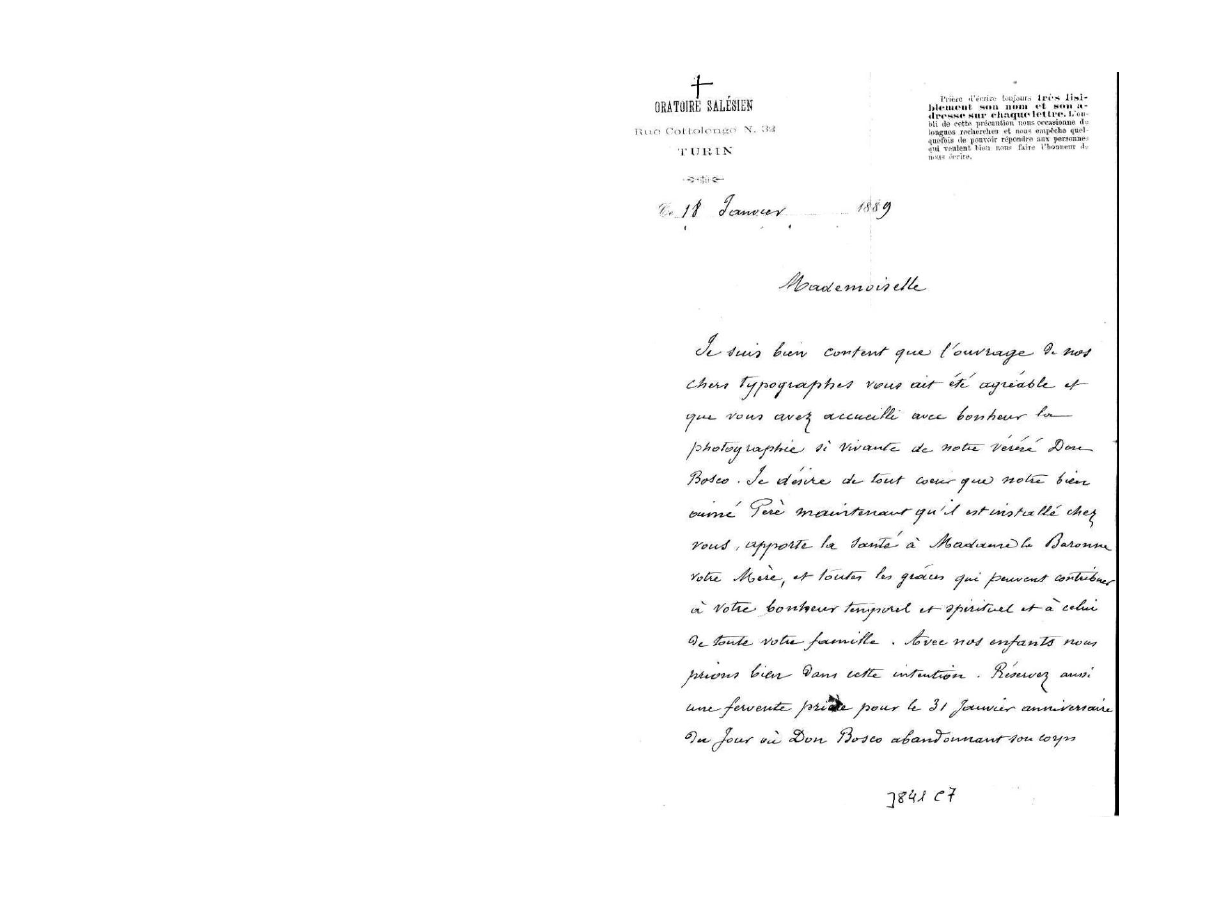 ORATOIRE SALÉSIEN
Rue Cottolengo N. 32
TURIN
Prière d'écrire toujours très lisi-
blement son nom et son a-
dresse sur chaque lettre. L'ou-
bli de cette précaution nous occasionne de
longues recherches et nous empêche quel-
quefois de pouvoir répondre aux personnes
qui veulent bien nous faire l'honneur de
nous écrire.
Le 18 Janvier 1889
Mademoiselle
Je suis bien content que l'ouvrage de nos
chers typographes vous ait été agréable et
que vous avez accueilli avec bonheur la
photographie si vivante de notre vénéré Don
Bosco. Je désire de tout coeur que notre bien
aimé Père maintenant qu'il est installé chez
vous, apporte la santé à Madame la Baronne
votre Mère, et toutes les grâces qui peuvent contribuer
à votre bonheur temporel et spirituel et à celui
de toute votre famille. Avec nos enfants nous
prions bien dans cette intention. Réservez aussi
une fervente prière pour le 31 Janvier anniversaire
du Jour où Don Bosco abandonnant son corps
3841 C7